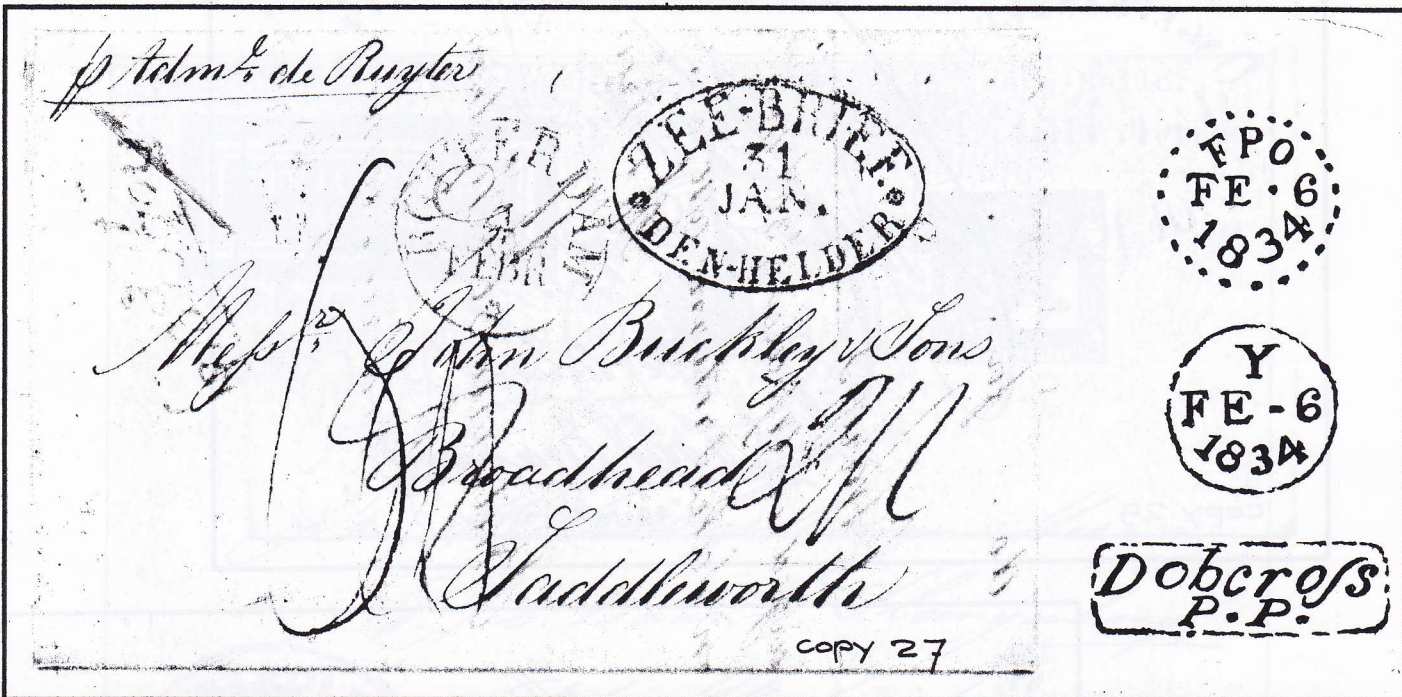 p Adml. de Ruyter
ZEE-BRIEF.
31
JAN.
DEN-HELDER
FEBR
Messrs John Buckley & Sons
Broadhead
Saddleworth
copy 27
FPO
FE·6
1834
Y
FE-6
1834
Dobcroſs
P.P.